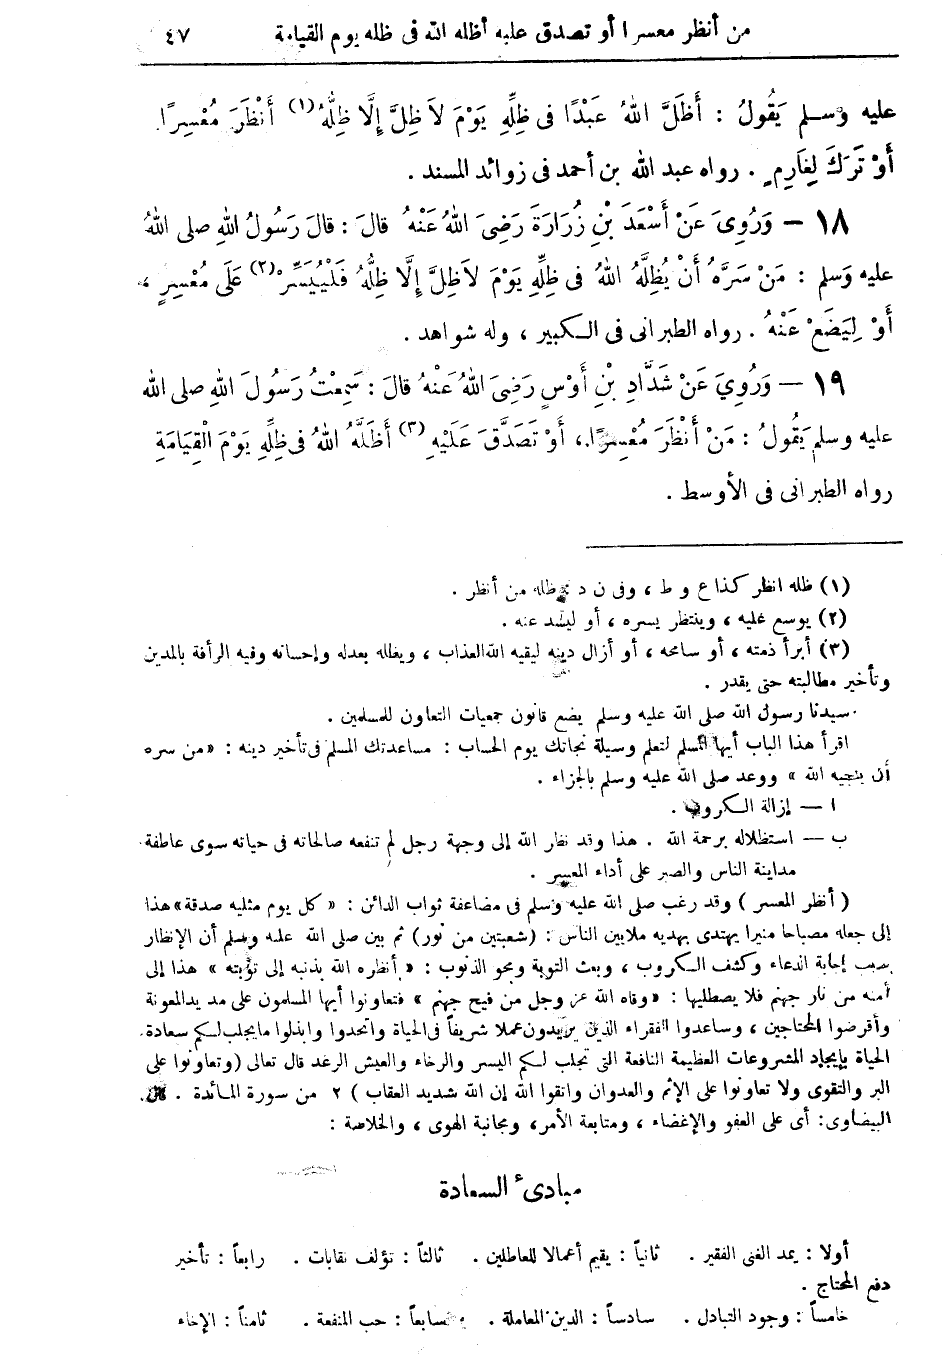 من أنظر معسرا أو تصدق عليه أظله الله فى ظله يوم القيامة ٤٧
عليه وسلم يَقُولُ : أَظَلَّ اللهُ عَبْدًا فى ظِلِّهِ يَوْمَ لاَ ظِلَّ إِلَّا ظِلُّهُ (١) أَنْظَرَ مُعْسِرًا
أَوْ تَرَكَ لِغَارِمٍ . رواه عبد الله بن أحمد فى زوائد المسند .
١٨ – وَرُوِىَ عَنْ أَسْعَدَ بْنِ زُرَارَةَ رَضِىَ اللهُ عَنْهُ قالَ : قالَ رَسُولُ اللهِ صلى اللهُ
عليه وَسلم : مَنْ سَرَّهُ أَنْ يُظِلَّهُ اللهُ فى ظِلِّهِ يَوْمَ لاَظِلَّ إِلَّا ظِلُّهُ فَلْيُيَسِّرْ (٢) عَلَى مُعْسِرٍ ،
أَوْ لِيَضَعْ عَنْهُ . رواه الطبرانى فى الكبير ، وله شواهد .
١٩ – وَرُوِيَ عَنْ شَدَّادِ بْنِ أَوْسٍ رَضِىَ اللهُ عَنْهُ قالَ : سَمِعْتُ رَسُولَ اللهِ صلى الله
عليه وسلم يَقُولُ : مَنْ أَنْظَرَ مُعْسِرًا ، أَوْ تَصَدَّقَ عَلَيْهِ (٣) أَظَلَّهُ اللهُ فى ظِلِّهِ يَوْمَ الْقِيَامَةِ
رواه الطبرانى فى الأوسط .
(١) ظله انظر كذا ع و ط ، وفى ن د ظله من أنظر .
(٢) يوسع عليه ، وينتظر يسره ، أو ليشد عنه .
(٣) أبرأ ذمته ، أو سامحه ، أو أزال دينه ليقيه الله العذاب ، ويظلله بعدله وإحسانه وفيه الرأفة بالمدين
وتأخير مطالبته حتى يقدر .
سيدنا رسول الله صلى الله عليه وسلم يضع قانون جمعيات التعاون للمسلمين .
اقرأ هذا الباب أيها المسلم لتعلم وسيلة نجاتك يوم الحساب : مساعدتك المسلم فى تأخير دينه : « من سره
أن ينجيه الله » ووعد صلى الله عليه وسلم بالجزاء .
ا – إزالة الكروب .
ب – استظلاله برحمة الله . هذا وقد نظر الله إلى وجهة رجل لم تنفعه صالحاته فى حياته سوى عاطفة
مداينة الناس والصبر على أداء المعسر .
( أنظر المعسر ) وقد رغب صلى الله عليه وسلم فى مضاعفة ثواب الدائن : « كل يوم مثليه صدقة » هذا
إلى جعله مصباحا منيرا يهتدى بهديه ملايين الناس : (شعبتين من نور) ثم بين صلى الله عليه وسلم أن الإنظار
بسبب إجابة الدعاء وكشف الكروب ، وبعث التوبة ومحو الذنوب : « أنظره الله بذنبه إلى توبته » هذا إلى
أمنه من نار جهنم فلا يصطليها : « وقاه الله عز وجل من فيح جهنم » فتعاونوا أيها المسلمون على مد يد المعونة
وأقرضوا المحتاجين ، وساعدوا الفقراء الذين يريدون عملا شريفاً فى الحياة واتحدوا وابذلوا ما يجلب لكم سعادة
الحياة بإيجاد المشروعات العظيمة النافعة التى تجلب لكم اليسر والرخاء والعيش الرغد قال تعالى (وتعاونوا على
البر والتقوى ولا تعاونوا على الإثم والعدوان واتقوا الله إن الله شديد العقاب ) ٢ من سورة المائدة . قال
البيضاوى : أى على العفو والإغضاء ، ومتابعة الأمر، ومجانبة الهوى ، والخلاصة :
مبادىء السعادة
أولا : يمد الغنى الفقير . ثانياً : يقيم أعمالا للعاطلين . ثالثاً : تؤلف نقابات . رابعاً : تأخير
دفع المحتاج .
خامساً : وجود التبادل . سادساً : الدين المعاملة . سابعاً : حب المنفعة . ثامناً : الإخاء